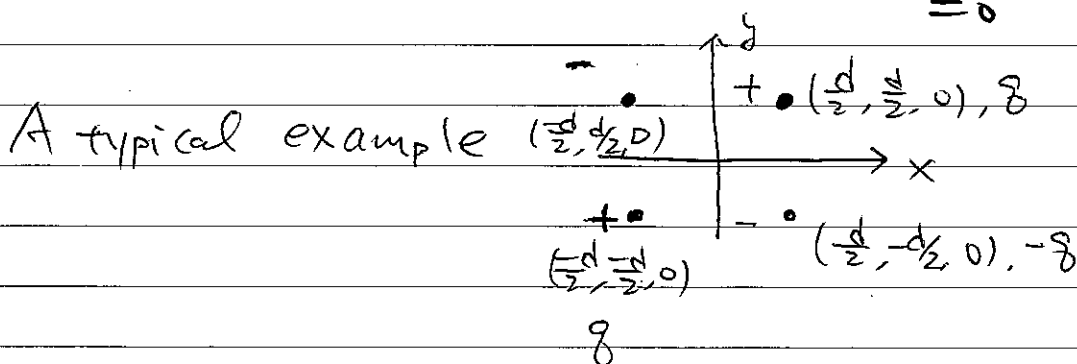 = 0
y
- + (d/2, d/2, 0), q
A typical example (-d/2, d/2, 0)
x
+ - (d/2, -d/2, 0), -q
(-d/2, -d/2, 0)
q